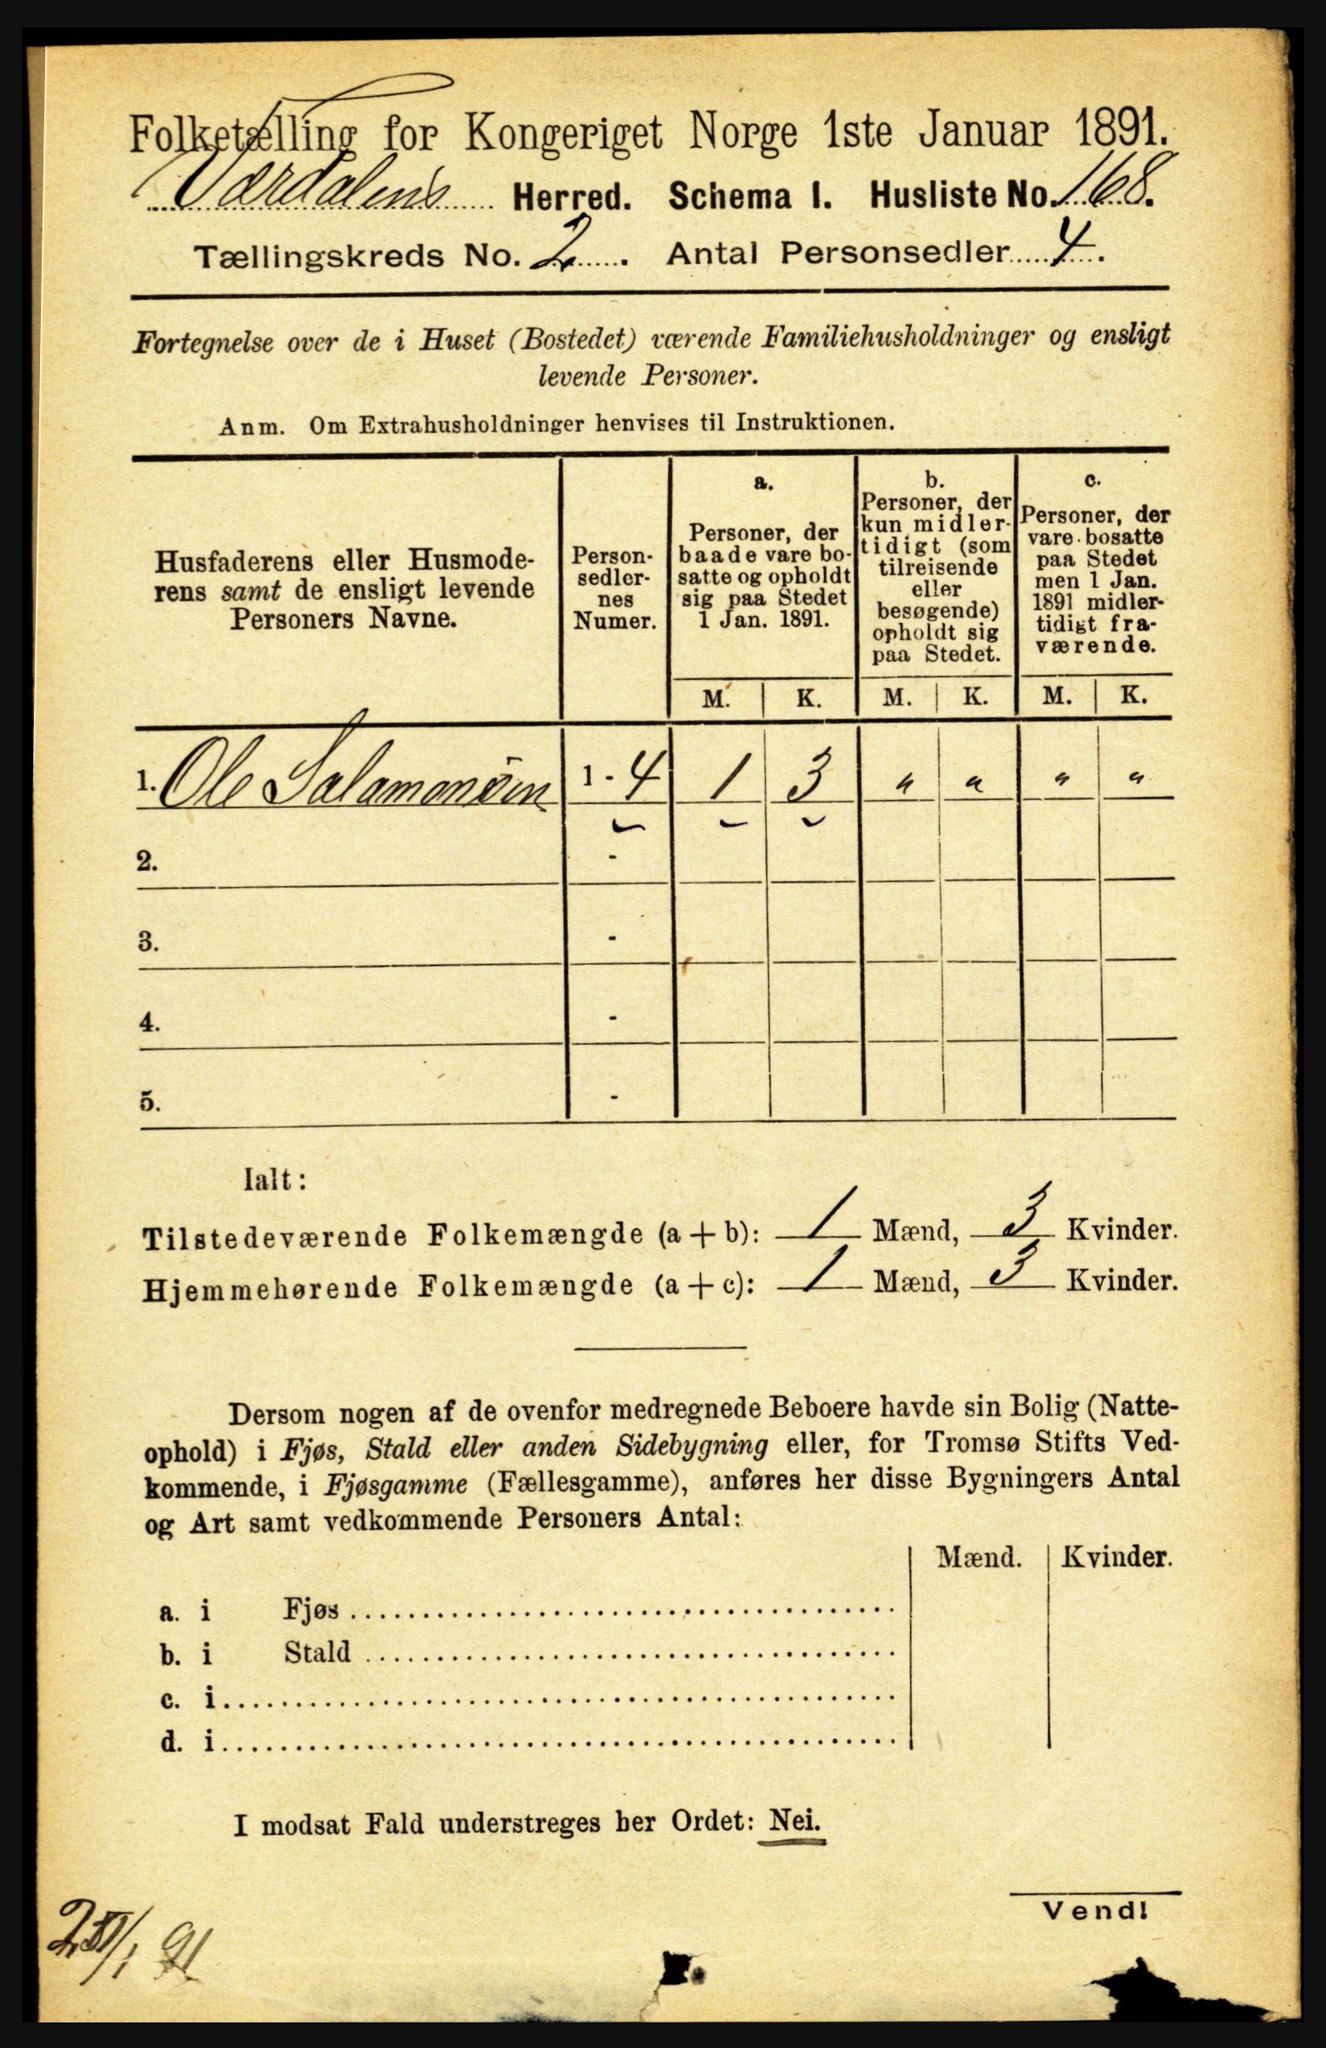 Folketælling for Kongeriget Norge 1ste Januar 1891.
Værdalens Herred. Schema I. Husliste No. 168.
Tællingskreds No. 2. Antal Personsedler 4.
Fortegnelse over de i Huset (Bostedet) værende Familiehusholdninger og ensligt
levende Personer.
Anm. Om Extrahusholdninger henvises til Instruktionen.
Husfaderens eller Husmode-
rens samt de ensligt levende
Personers Navne.
Person-
sedler-
nes
Numer.
a.
Personer, der
baade vare bo-
satte og opholdt
sig paa Stedet
1 Jan. 1891.
b.
Personer, der
kun midler-
tidigt (som
tilreisende
eller
besøgende)
opholdt sig
paa Stedet.
c.
Personer, der
vare bosatte
paa Stedet
men 1 Jan.
1891 midler-
tidigt fra-
værende.
M. K. M. K. M. K.
1. Ole Salamonsen 1 - 4 1 3 " " " "
2. -
3. -
4. -
5. -
Ialt:
Tilstedeværende Folkemængde (a + b): 1 Mænd, 3 Kvinder.
Hjemmehørende Folkemængde (a + c): 1 Mænd, 3 Kvinder.
Dersom nogen af de ovenfor medregnede Beboere havde sin Bolig (Natte-
ophold) i Fjøs, Stald eller anden Sidebygning eller, for Tromsø Stifts Ved-
kommende, i Fjøsgamme (Fællesgamme), anføres her disse Bygningers Antal
og Art samt vedkommende Personers Antal:
Mænd. Kvinder.
a. i Fjøs
b. i Stald
c. i
d. i
I modsat Fald understreges her Ordet: Nei.
Vend!